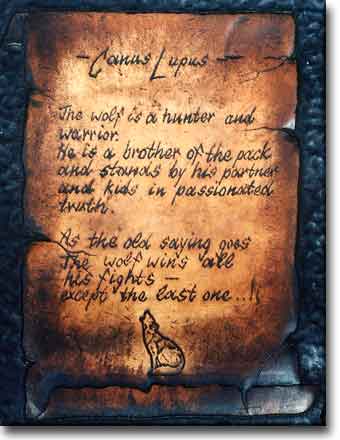 - Canus Lupus -
The wolf is a hunter and
warrior.
He is a brother of the pack
and stands by his partner
and kids in passionated
truth.
As the old saying goes
The wolf wins all
his fights -
except the last one ...!!